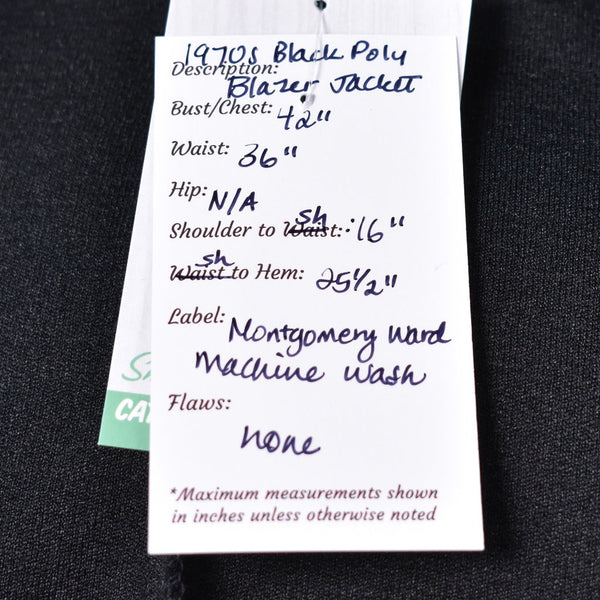 1970s Black Poly
Description:
Blazer Jacket
Bust/Chest: 42"
Waist: 36"
Hip: N/A
sh
Shoulder to Waist: 16"
sh
Waist to Hem: 25 1/2"
Label: Montgomery Ward
Machine Wash
Flaws:
none
*Maximum measurements shown
in inches unless otherwise noted